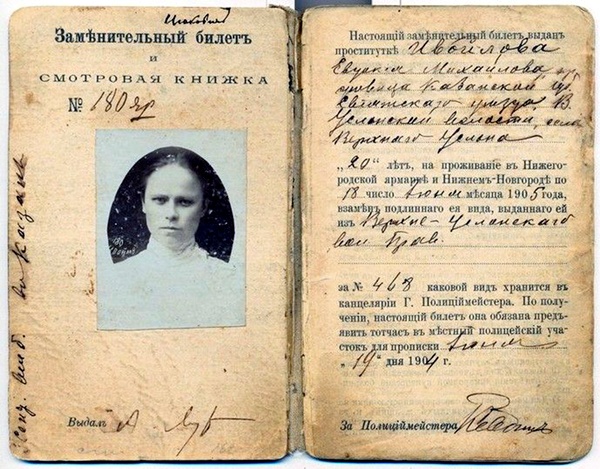 Замѣнительный билетъ
и
СМОТРОВАЯ КНИЖКА
№ 180 яр
Выдалъ
въ Казань
Настоящій замѣнительный билетъ выданъ
проституткѣ Ивогилова
Евдокія Михайлова
Казанской губ.
уѣзда, В.
Услонской волости, села
Верхняго Услона
„20“ лѣтъ, на проживаніе въ Нижего-
родской ярмаркѣ и Нижнемъ-Новгородѣ по
18 число іюня мѣсяца 1905 года,
взамѣнъ подлиннаго ея вида, выданнаго ей
изъ Верхне-Услонскаго
вол. Прав.
за № 468 каковой видъ хранится въ
канцеляріи Г. Полиціймейстера. По полу-
ченіи, настоящій билетъ она обязана предъ-
явить тотчасъ въ мѣстный полицейскій уча-
стокъ для прописки Іюня
„19“ дня 1904 г.
За Полиціймейстера